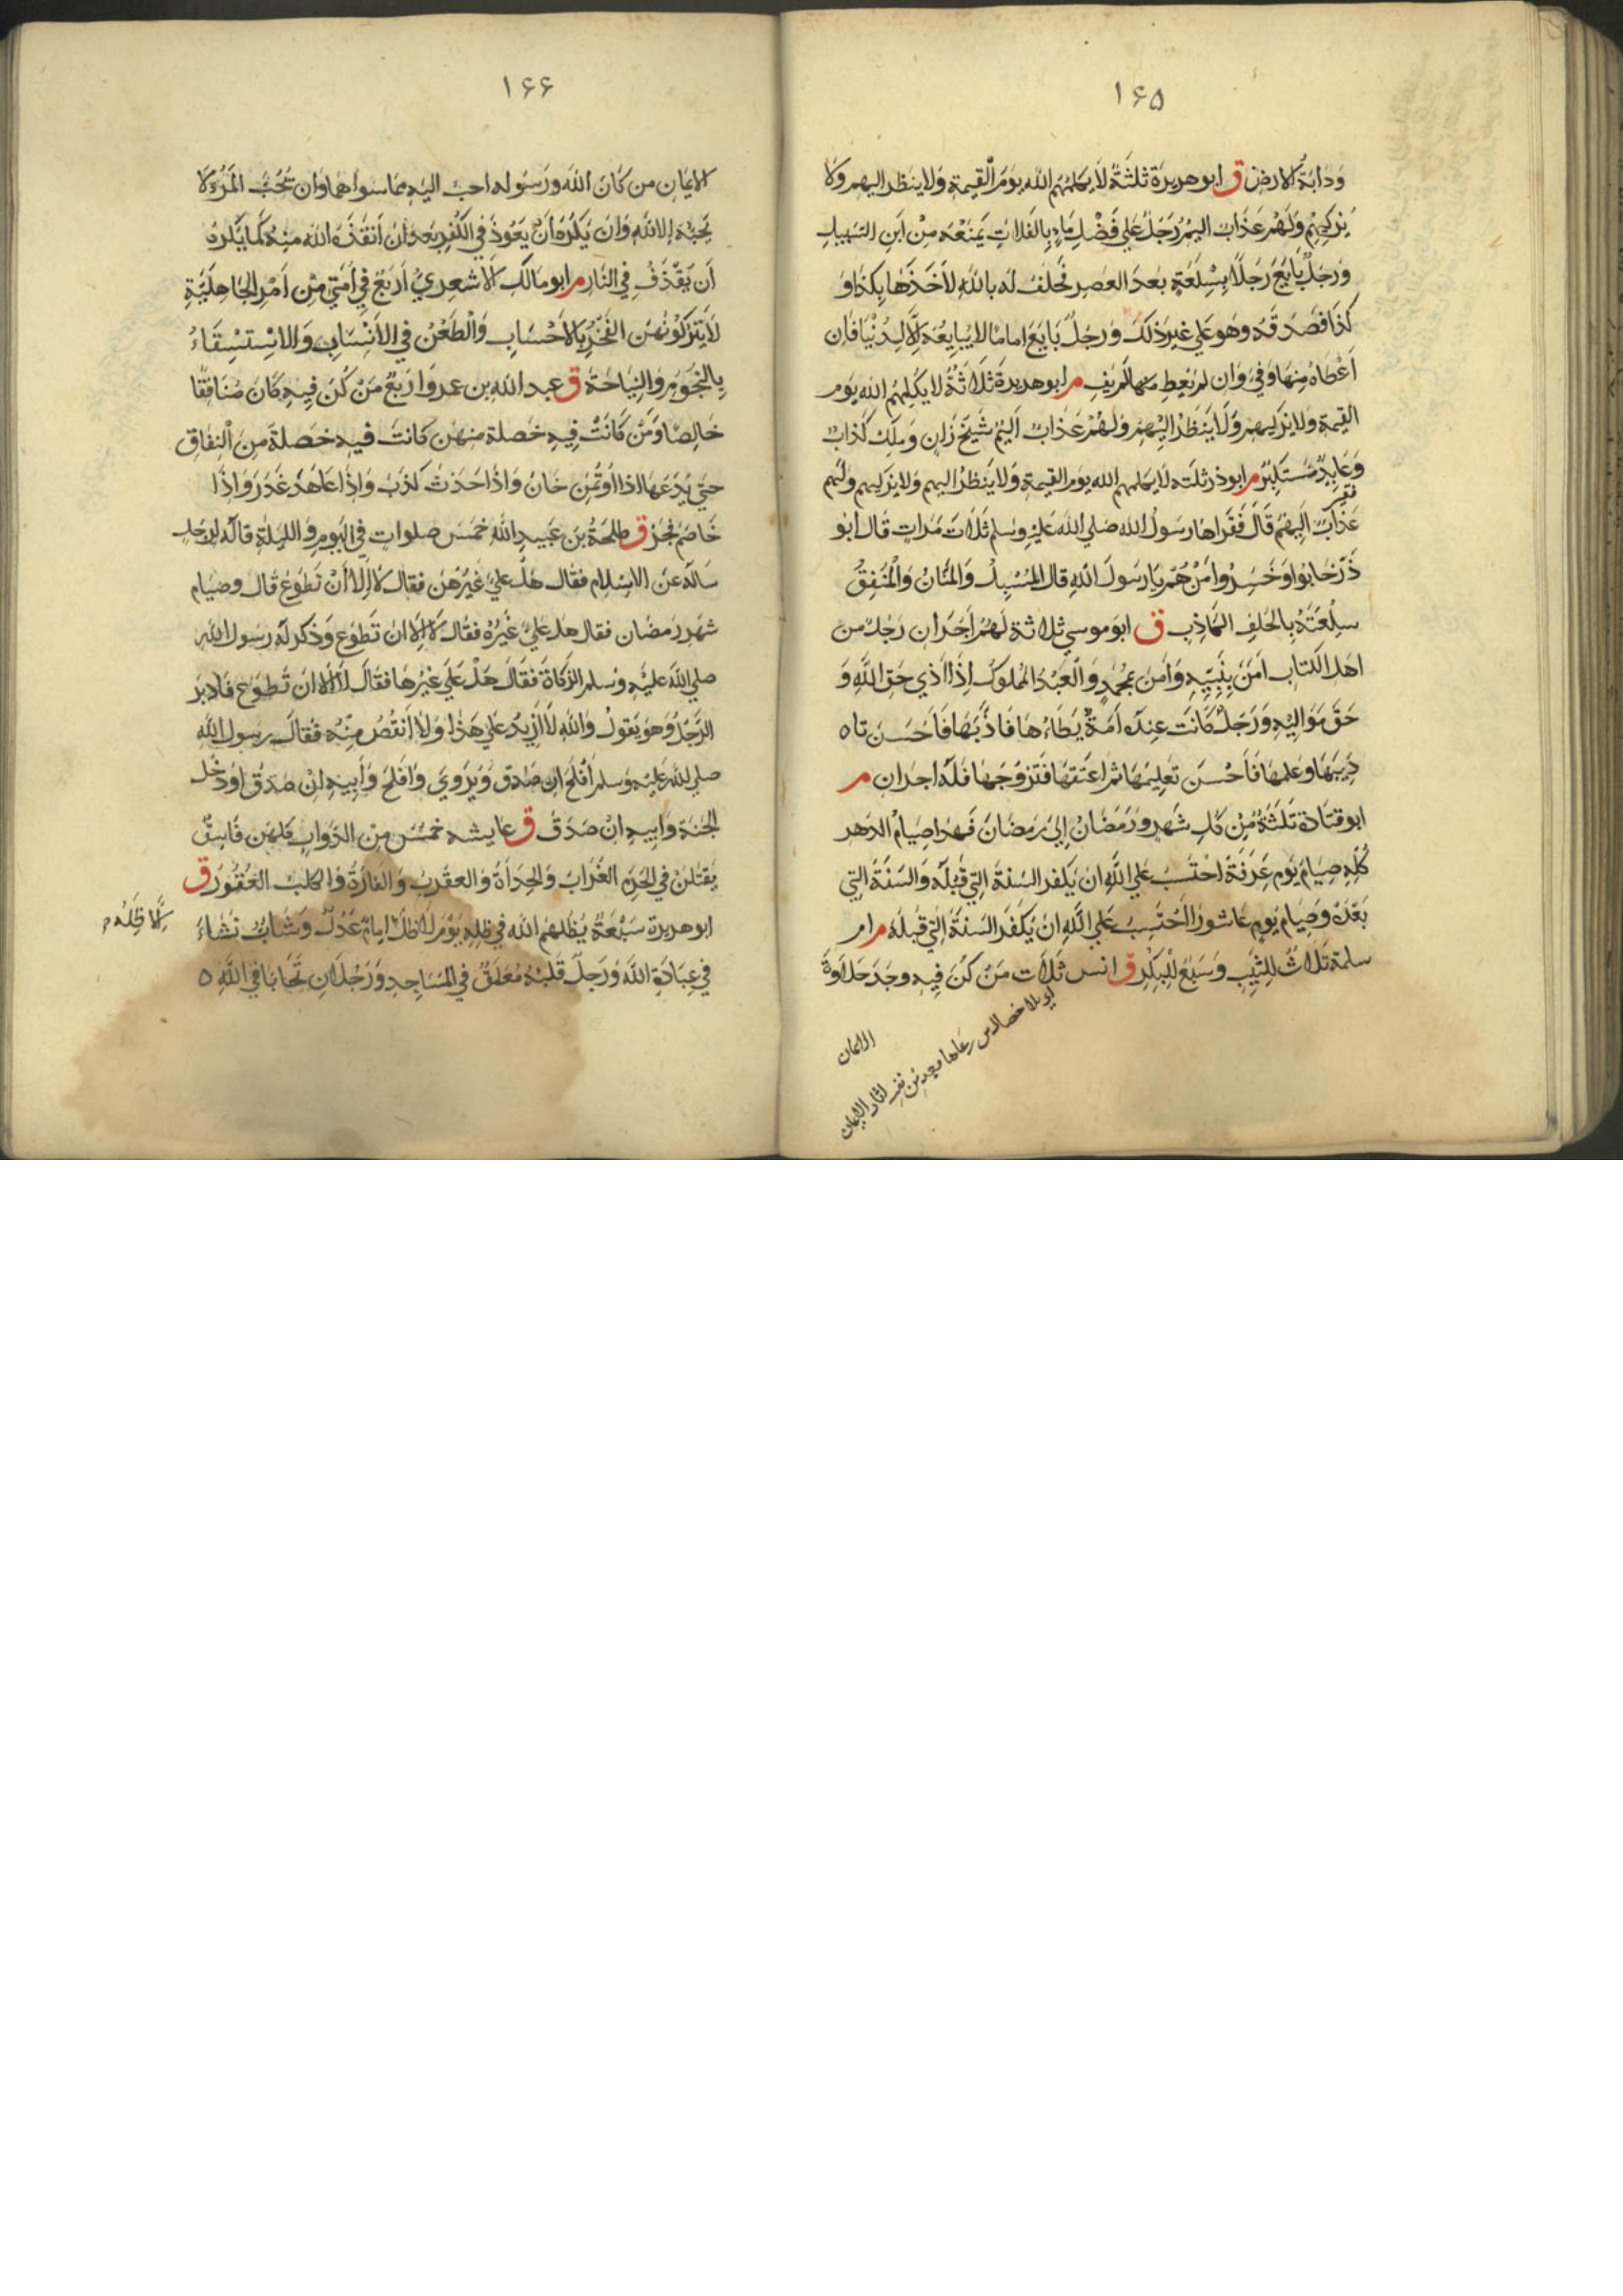 ١۶۵
وَدَابَةُ الارض ق ابو هريرة ثلثَةٌ لاَ يكلمُهُم الله يومَ القيمةِ ولا ينظر اليهم ولا
يزكيهم ولهم عذاب اليم رجل علي فضل ماءٍ بالفلاتِ يمنعه من ابن السبيل
ورجل بايع رجلا بسلعة بعد العصر فحلف له بالله لأخذها بكذا و
كذا فصدقه وهو علي غير ذلك ورجل بايع اماما لا يبايعه الا لدنيا فان
اعطاه منها وفي وان لم يعط منها لم يف م ابو هريرة ثلاثة لا يكلمهم الله يوم
القيمة ولا يزكيهم ولا ينظر اليهم ولهم عذاب اليم شيخ زان وملك كذاب
وعايل مستكبر م ابو ذر ثلثه لا يكلمهم الله يوم القيمة ولا ينظر اليهم ولا يزكيهم ولهم
عذاب اليم قال فقراها رسول الله صلي الله عليه وسلم ثلاث مرات قال ابو
ذر خابوا وخسروا من هم يا رسول الله قال المسبل والمنان والمنفق
سلعته بالحلف الكاذب ق ابو موسي ثلاثة لهم اجران رجل من
اهل الكتاب امن بنبيه وامن بمحمد والعبد المملوك اذا اذي حق الله و
حق مواليه ورجل كانت عنده امة يطاءها فاذبها فاحسن تا
ديبها وعلمها فاحسن تعليمها ثم اعتقها فتزوجها فله اجران م
ابو قتادة ثلثة من كل شهر ورمضان الي رمضان فهذا صيام الدهر
كله صيام يوم عرفة احتسب علي الله ان يكفر السنة التي قبله والسنة التي
بعده وصيام يوم عاشورا احتسب علي الله ان يكفر السنة التي قبله م ام
سلمة ثلاث للثيب وسبع للبكر ق انس ثلاث من كن فيه وجد حلاوة
الايمان
١۶۶
الايمان من كان الله ورسوله احب اليه مما سواهما وان تحب المرء لا
يحبه الا لله وان يكره ان يعود في الكفر بعد ان انقذه الله منه كما يكره
ان يقذف في النار م ابو مالك الاشعري اربع في امتي من امر الجاهلية
لا يتركونهن الفخر بالاحساب والطعن في الانساب والاستسقاء
بالنجوم والنياحة ق عبد الله بن عمرو اربع من كن فيه كان منافقا
خالصا ومن كانت فيه خصلة منهن كانت فيه خصلة من النفاق
حتي يدعها اذا اوتمن خان واذا حدث كذب واذا عاهد غدر واذا
خاصم فجر ق طلحة بن عبيد الله خمس صلوات في اليوم والليلة قاله لرجل
ساله عن الاسلام فقال هل علي غيرهن فقال لا الا ان تطوع قال وصيام
شهر رمضان فقال هل علي غيره فقال لا الا ان تطوع وذكر له رسول الله
صلي الله عليه وسلم الزكاة فقال هل علي غيرها فقال لا الا ان تطوع فادبر
الرجل وهو يقول والله لا ازيد علي هذا ولا انقص منه فقال رسول الله
صلي الله عليه وسلم افلح ان صدق ويروي وافلح وابيه ان صدق او دخل
الجنة وابيه ان صدق ق عايشه خمس من الدواب كلهن فاسق
يقتلن في الحرم الغراب والحدأة والعقرب والفارة والكلب العقور ق
ابو هريرة سبعة يظلهم الله في ظله يوم لا ظل امام عدل وشاب نشاء
الا ظله
في عبادة الله ورجل قلبه معلق في المساجد ورجلان تحابا في الله